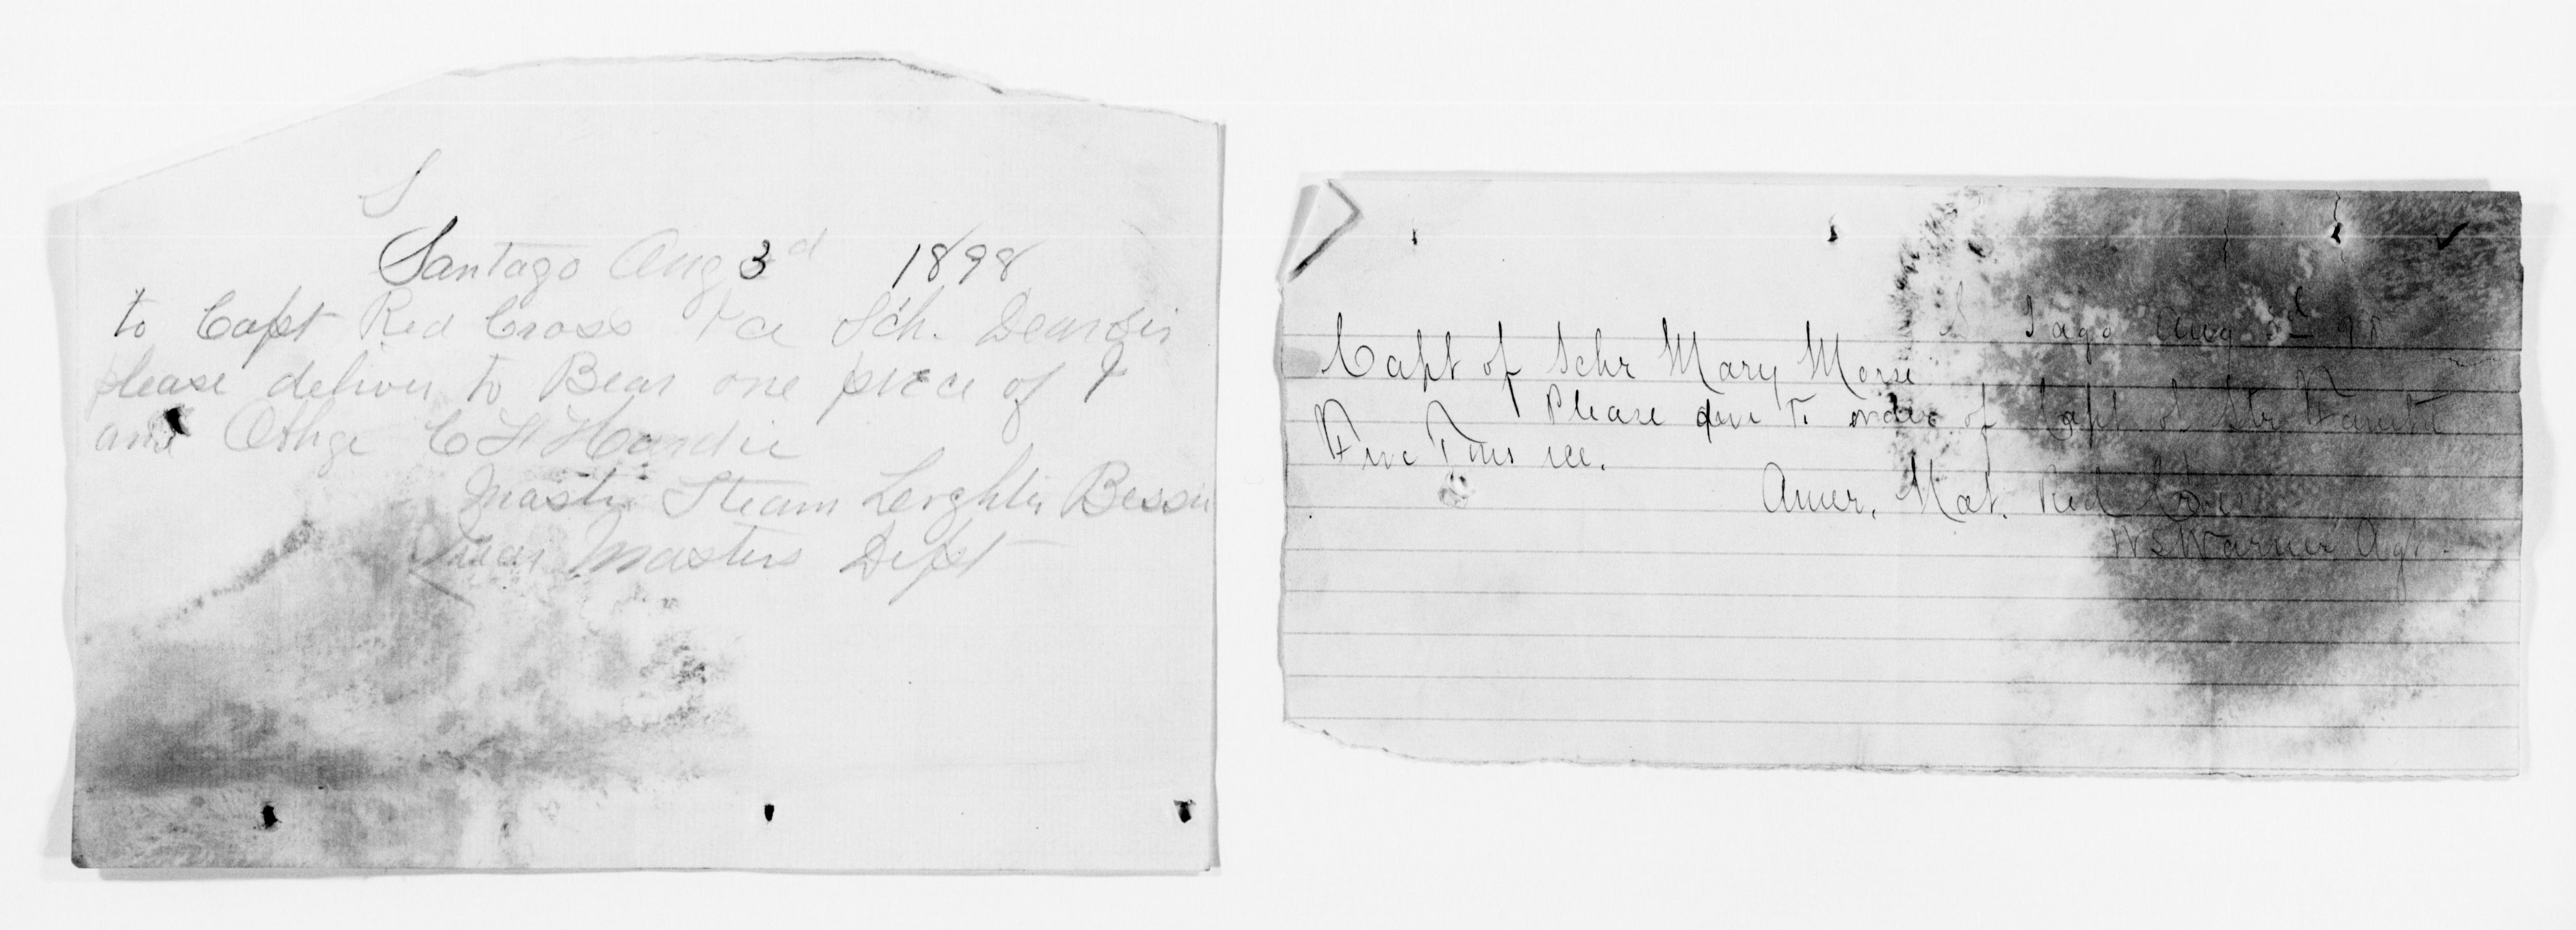 S
Santago Aug 3d 1898
to Capt Red Cross Ice Sch.
please deliver to Bear one piece of I
and Oblige C H Hardie
Master Steam Leighter Bessie
Masters Dept
S Iago Aug 3d 98
Capt of Schr Mary Morse
Please give to order of Capt of Str
Five Tons ice.
Amer. Nat. Red Cross
W S Warner Agt.